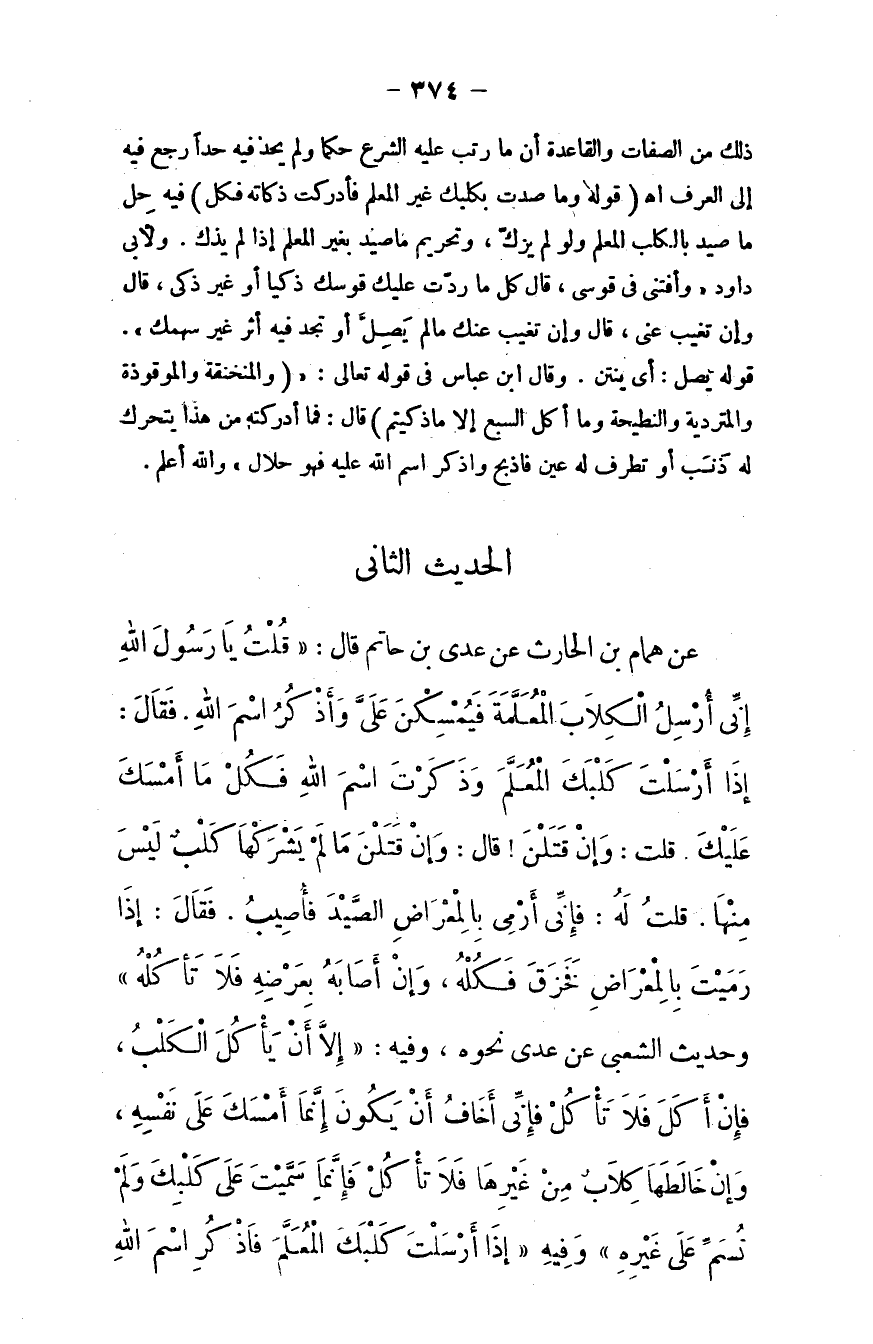 - ٣٧٤ -
ذلك من الصفات والقاعدة أن ما رتب عليه الشرع حكما ولم يحد فيه حداً رجع فيه
إلى العرف اه ( قوله وما صدت بكلبك غير المعلم فأدركت ذكاته فكل ) فيه حل
ما صيد بالكلب المعلم ولو لم يزكّ ، وتحريم ماصيد بغير المعلم إذا لم يذك . ولأبى
داود « وأفتنى فى قوسى ، قال كل ما ردّت عليك قوسك ذكيا أو غير ذكى ، قال
وإن تغيب عنى ، قال وإن تغيب عنك مالم يَصِلَّ أو تجد فيه أثر غير سهمك » .
قوله يصل : أى ينتن . وقال ابن عباس فى قوله تعالى : « ( والمنخنقة والموقوذة
والمتردية والنطيحة وما أكل السبع إلا ماذكيتم ) قال : فما أدركته من هذا يتحرك
له ذَنَب أو تطرف له عين فاذبح واذكر اسم الله عليه فهو حلال » والله أعلم .
الحديث الثانى
عن همام بن الحارث عن عدى بن حاتم قال : « قُلْتُ يَا رَسُولَ اللهِ
إِنِّى أُرْسِلُ الْكِلاَبَ الْمُعَلَّمَةَ فَيُمْسِكْنَ عَلَىَّ وَأَذْكُرُ اسْمَ اللهِ . فَقَالَ :
إِذَا أَرْسَلْتَ كَلْبَكَ الْمُعَلَّمَ وَذَكَرْتَ اسْمَ اللهِ فَكُلْ مَا أَمْسَكَ
عَلَيْكَ . قلت : وَإِنْ قَتَلْنَ ! قال : وَإِنْ قَتَلْنَ مَا لَمْ يَشْرَكْهَا كَلْبٌ لَيْسَ
مِنْهَا . قلتُ لَهُ : فَإِنِّى أَرْمِى بِالْمِعْرَاضِ الصَّيْدَ فَأُصِيبُ . فَقَالَ : إِذَا
رَمَيْتَ بِالْمِعْرَاضِ فَخَزَقَ فَكُلْهُ ، وَإِنْ أَصَابَهُ بِعَرْضِهِ فَلاَ تَأْكُلْهُ »
وحديث الشعبى عن عدى نحوه ، وفيه : « إِلاَّ أَنْ يَأْكُلَ الْكَلْبُ ،
فَإِنْ أَكَلَ فَلاَ تَأْكُلْ فَإِنِّى أَخَافُ أَنْ يَكُونَ إِنَّمَا أَمْسَكَ عَلَى نَفْسِهِ ،
وَإِنْ خَالَطَهَا كِلاَبٌ مِنْ غَيْرِهَا فَلاَ تَأْكُلْ فَإِنَّمَا سَمَّيْتَ عَلَى كَلْبِكَ وَلَمْ
تُسَمِّ عَلَى غَيْرِهِ » وَفِيهِ « إِذَا أَرْسَلْتَ كَلْبَكَ الْمُعَلَّمَ فَاذْكُرِ اسْمَ اللهِ